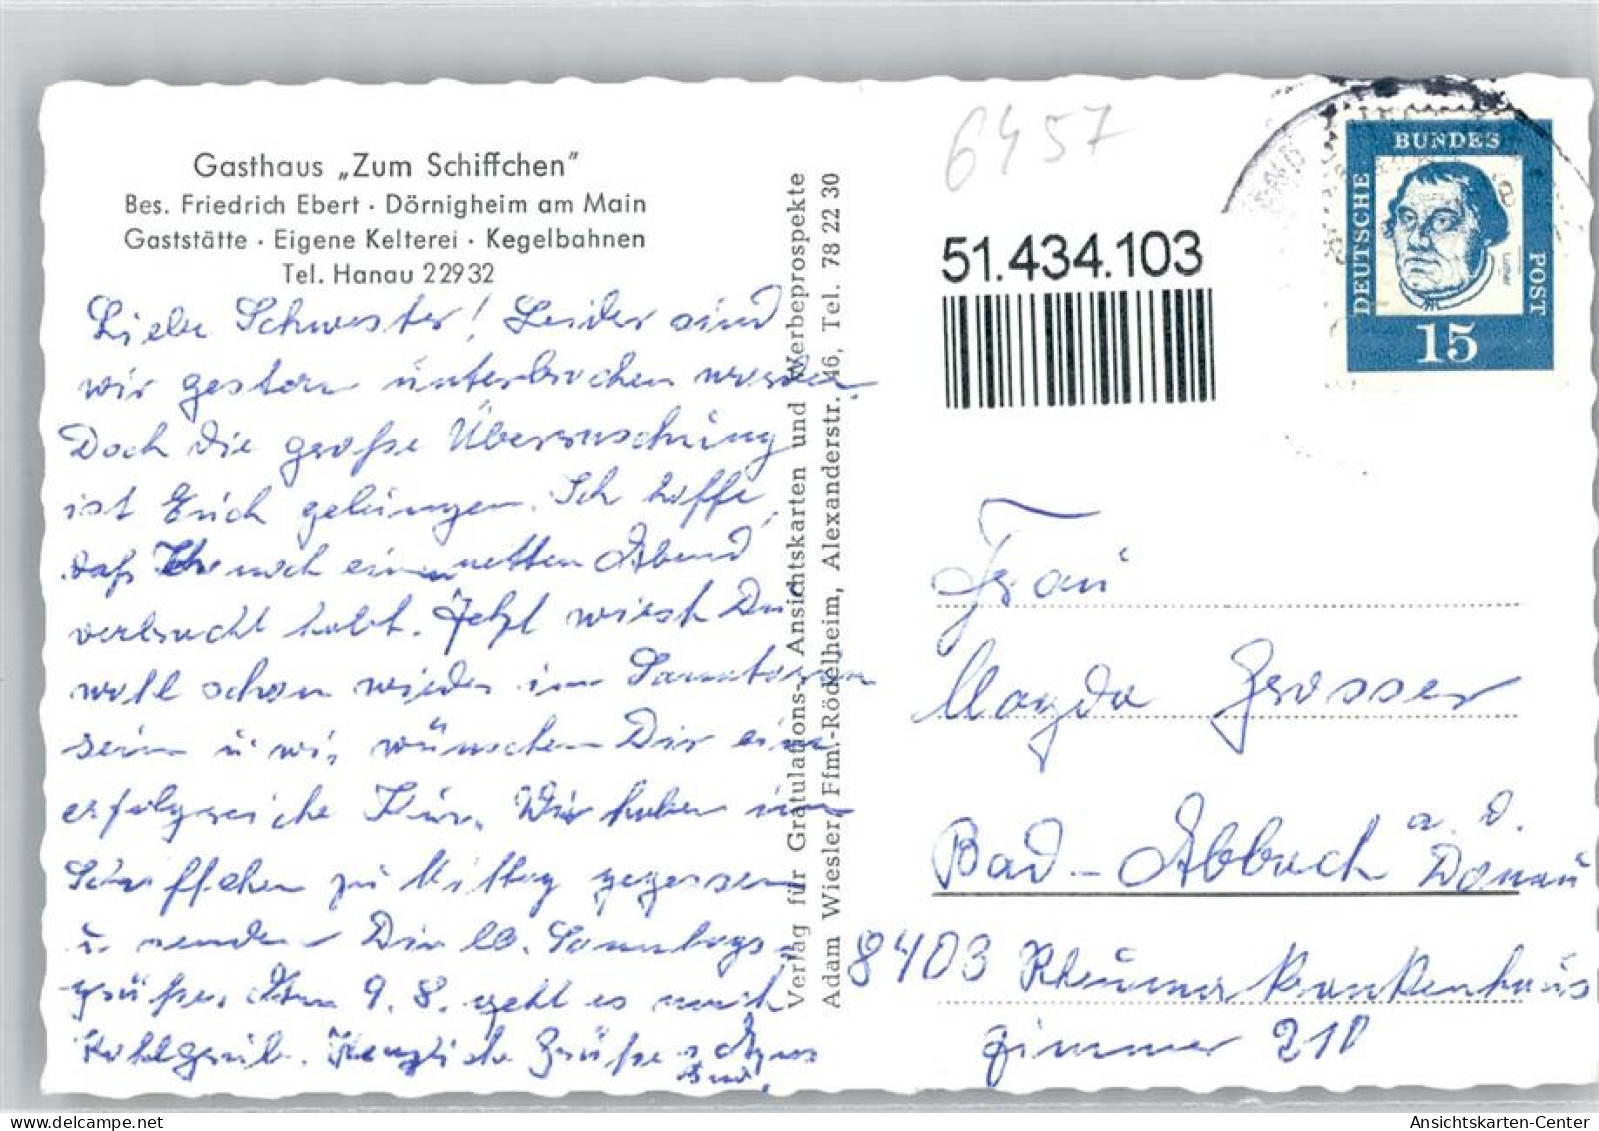 Gasthaus „Zum Schiffchen"
Bes. Friedrich Ebert · Dörnigheim am Main
Gaststätte · Eigene Kelterei · Kegelbahnen
Tel. Hanau 22932
Liebe Schwester! Leider sind
wir gestern unterbrochen worden.
Doch die große Überraschung
ist Euch gelungen. Ich hoffe,
daß Ihr noch einen netten Abend
verbracht habt. Jetzt wirst Du
wohl schon wieder im Sanatorium
sein u. wir wünschen Dir eine
erfolgreiche Kur. Wir haben im
Schiffchen zu Mittag gegessen
u. senden Dir lb. Sonntags-
grüße. Am 9. 8. geht es nach
Kohlgrub. Herzliche Grüße
Verlag für Gratulations-, Ansichtskarten und Werbeprospekte
Adam Wiesler, Ffm.-Rödelheim, Alexanderstr. 46, Tel. 78 22 30
6457
51.434.103
DEUTSCHE
BUNDES
POST
Luther
15
Frau
Magda Grosser
Bad-Abbach a. d.
Donau
8403 Rheuma Krankenhaus
Zimmer 210
Ansichtskarten-Center